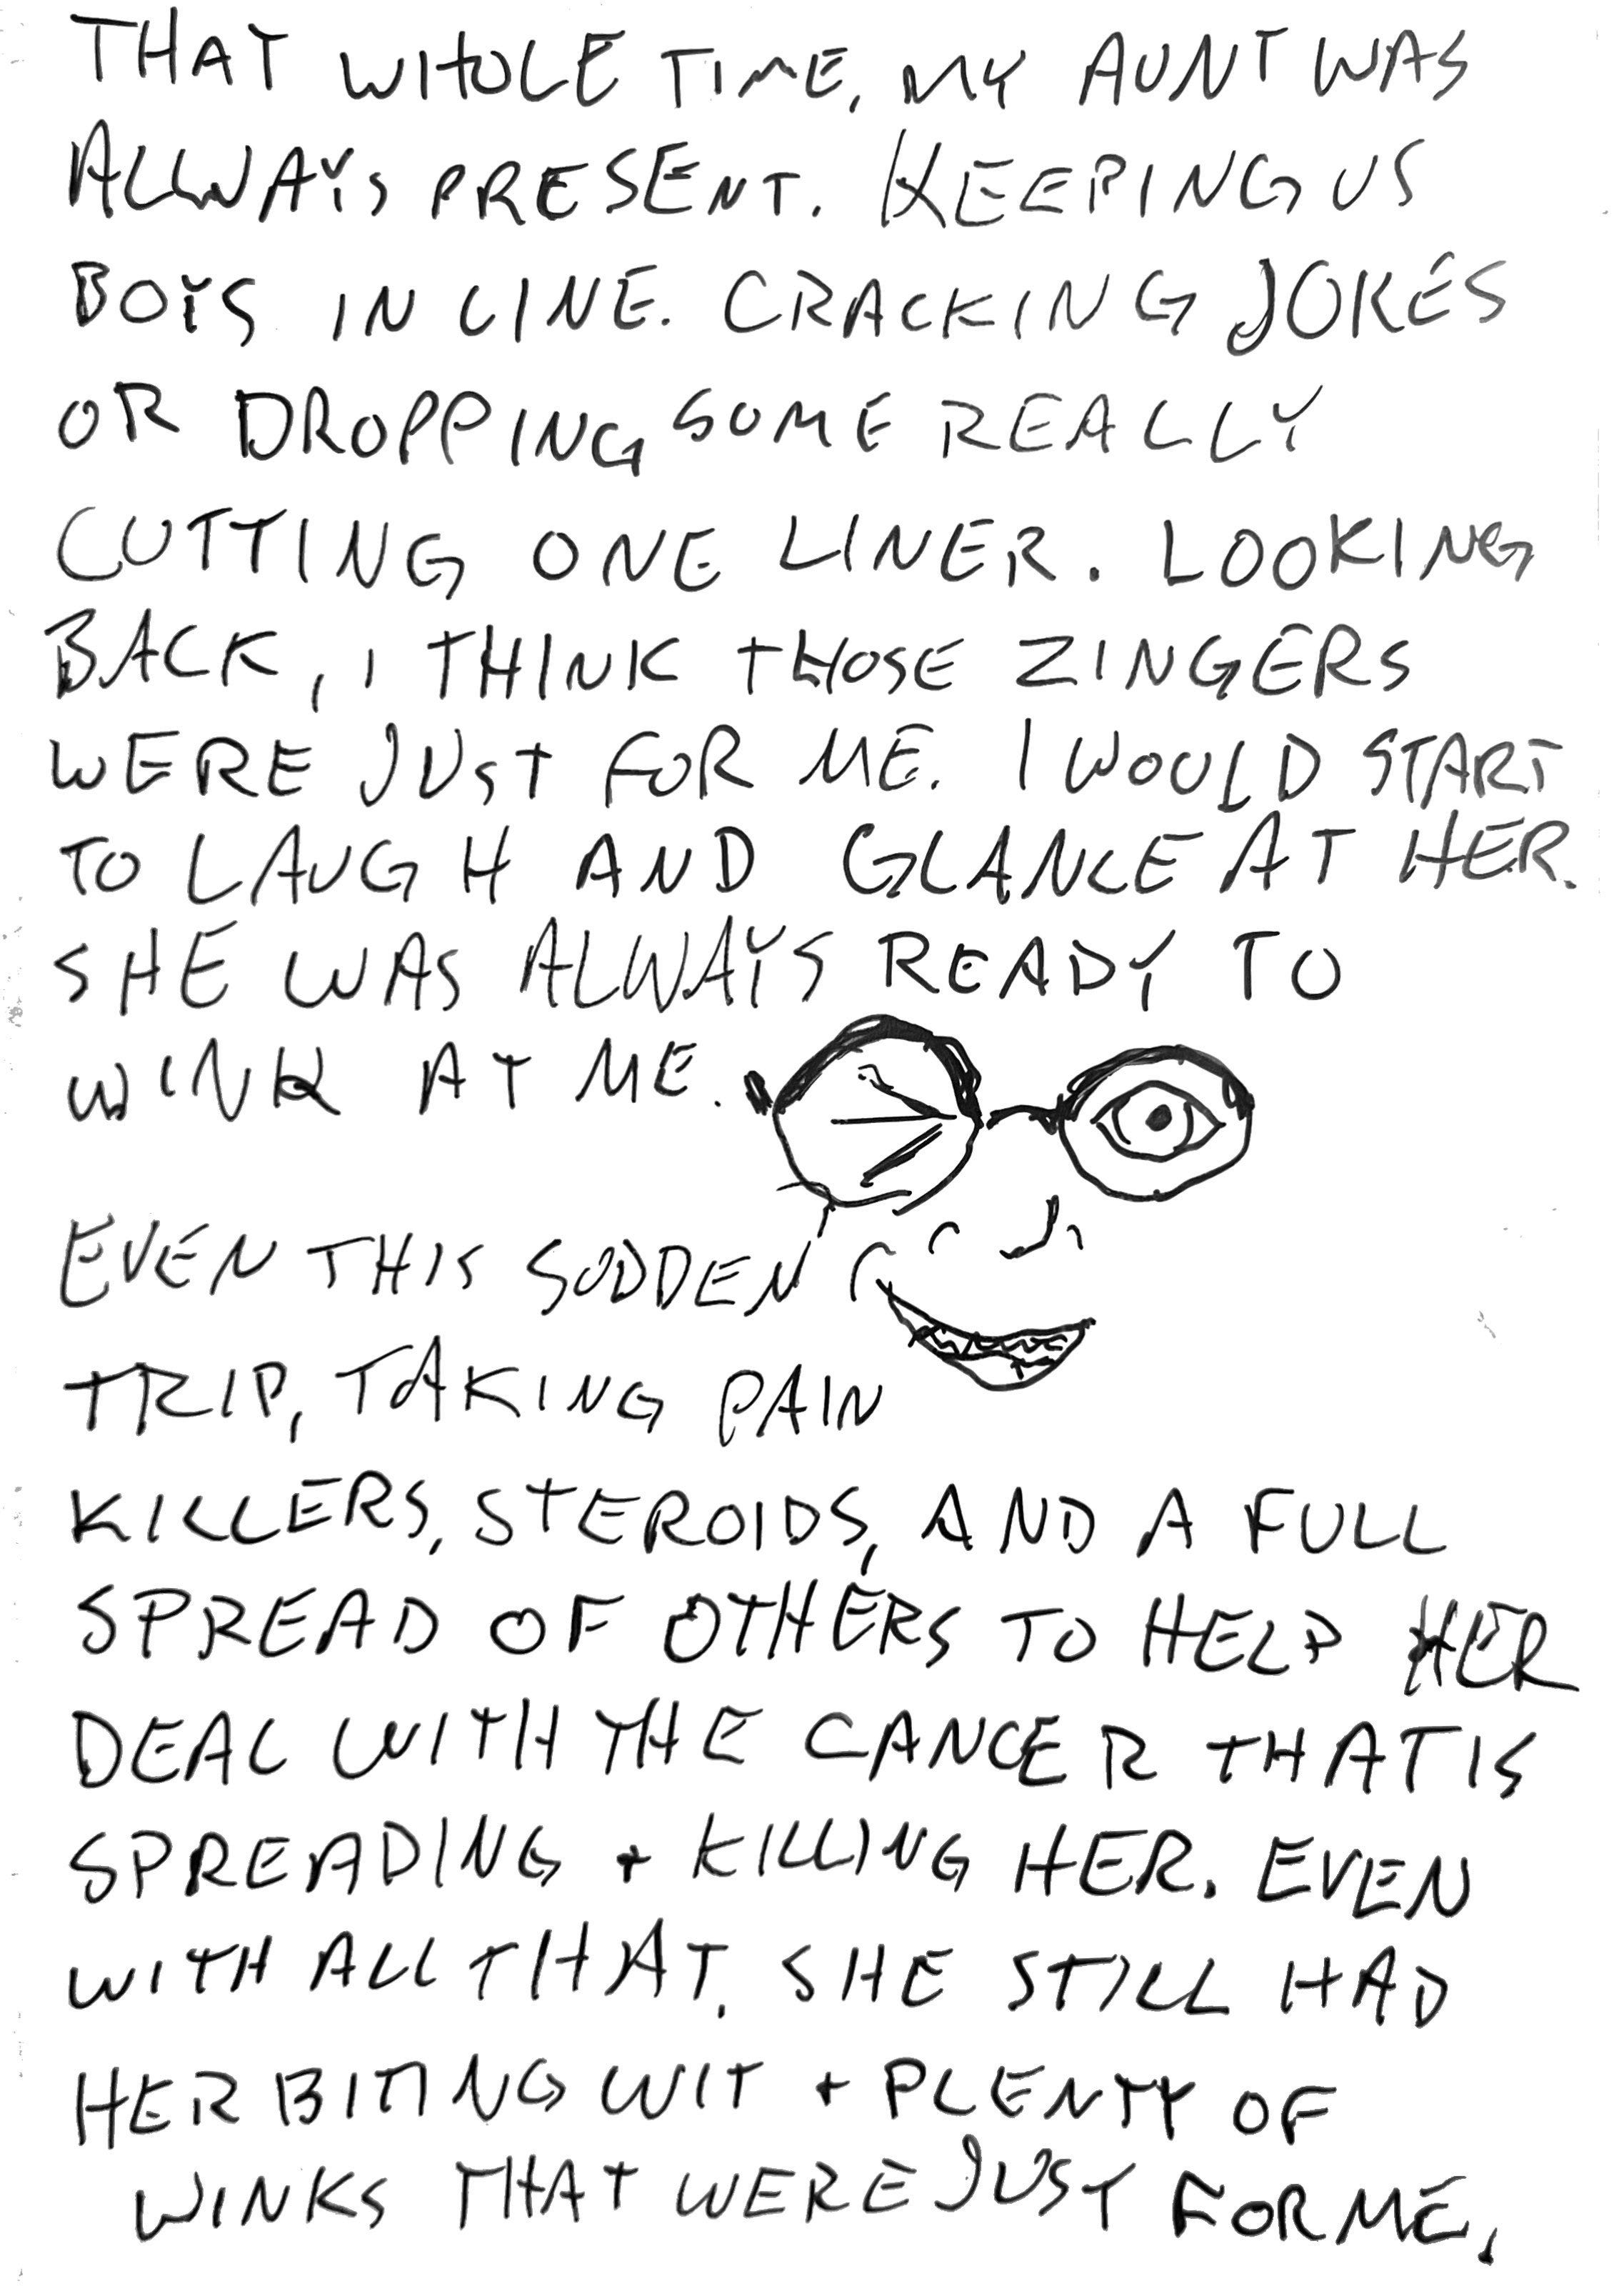 THAT WHOLE TIME, MY AUNT WAS
ALLWAYS PRESENT. KEEPING US
BOYS IN LINE. CRACKING JOKES
OR DROPPING SOME REALLY
CUTTING ONE LINER. LOOKING
BACK, I THINK THOSE ZINGERS
WERE JUST FOR ME. I WOULD START
TO LAUGH AND GLANCE AT HER.
SHE WAS ALWAYS READY TO
WINK AT ME.
EVEN THIS SUDDEN
TRIP, TAKING PAIN
KILLERS, STEROIDS, AND A FULL
SPREAD OF OTHERS TO HELP HER
DEAL WITH THE CANCER THAT IS
SPREADING + KILLING HER. EVEN
WITH ALL THAT, SHE STILL HAD
HER BITING WIT + PLENTY OF
WINKS THAT WERE JUST FOR ME.